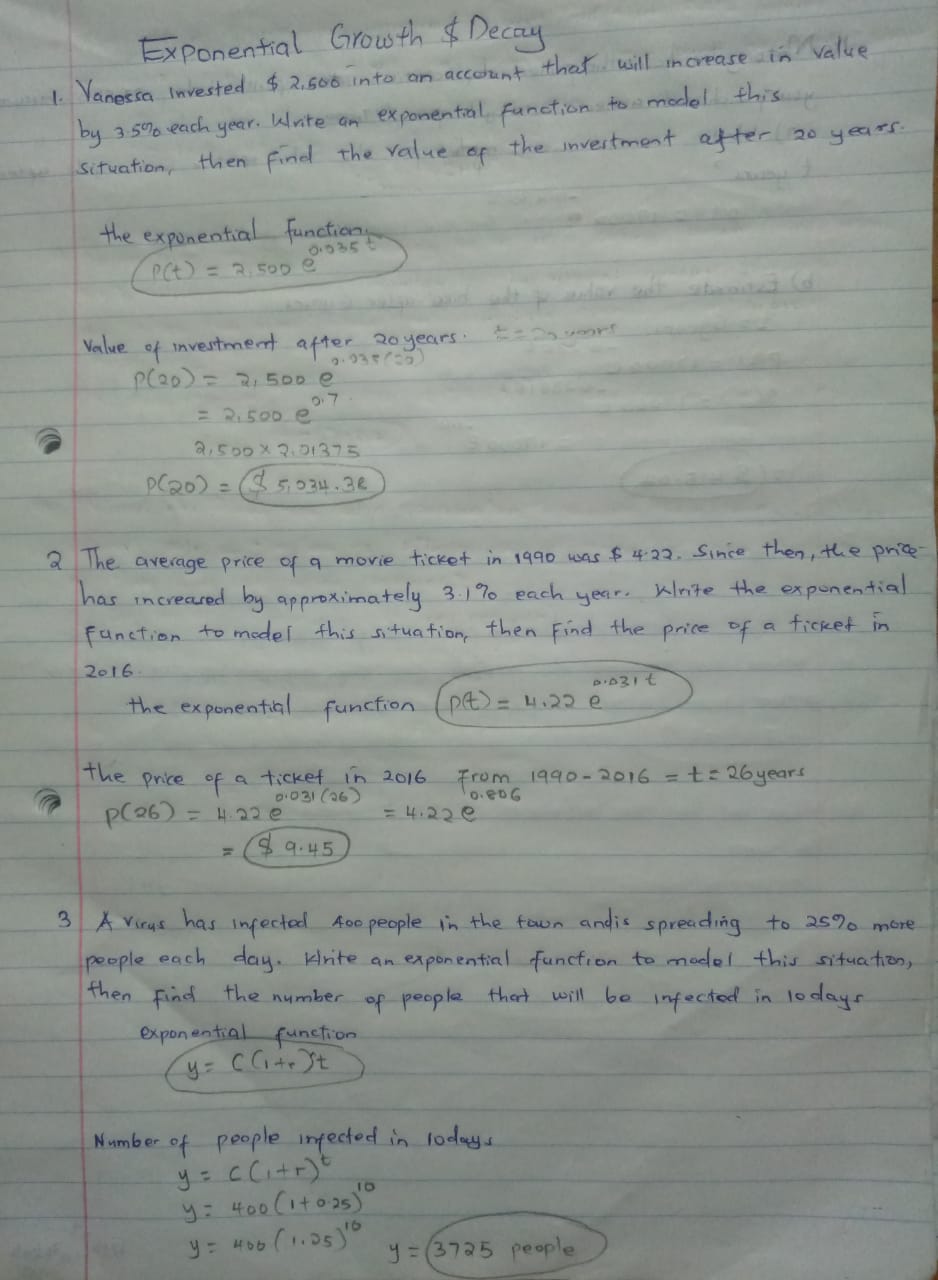 Exponential Growth & Decay
1. Vanessa invested $ 2,500 into an account that will increase in value
by 3.5% each year. Write an exponential function to model this
situation, then find the value of the investment after 20 years.
the exponential function.
P(t) = 2,500 e^0.035t
Value of investment after 20 years. t = 20 years
P(20) = 2,500 e^0.035(20)
= 2,500 e^0.7
2,500 x 2.01375
P(20) = $ 5,034.38
2 The average price of a movie ticket in 1990 was $ 4.22. Since then, the price
has increased by approximately 3.1% each year. Write the exponential
function to model this situation, then find the price of a ticket in
2016.
the exponential function P(t) = 4.22 e^0.031t
the price of a ticket in 2016 From 1990-2016 = t = 26 years
P(26) = 4.22 e^0.031(26) = 4.22 e^0.806
= $ 9.45
3 A virus has infected 400 people in the town and is spreading to 25% more
people each day. Write an exponential function to model this situation,
then find the number of people that will be infected in 10 days
exponential function
y = C(1+r)^t
Number of people infected in 10 days
y = C(1+r)^t
y = 400(1+0.25)^10
y = 400(1.25)^10 y = 3725 people